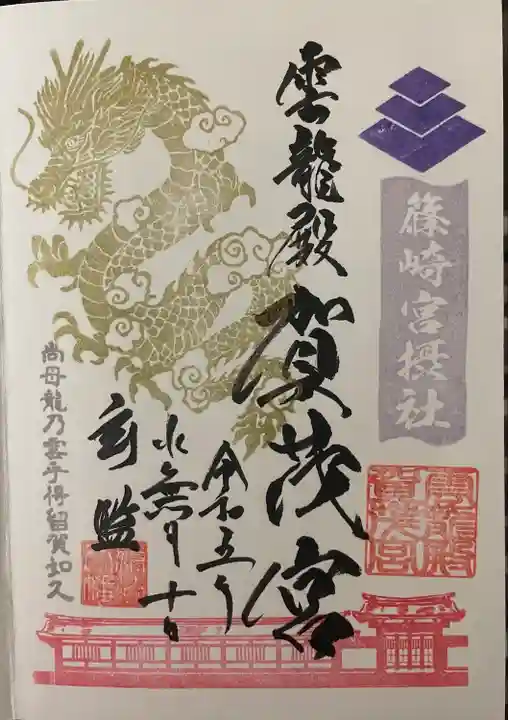 篠崎宮摂社
雲龍殿賀茂宮
雲龍殿
賀茂宮
令和五年
水無月十日
尚母龍乃雲乎得留賀如久